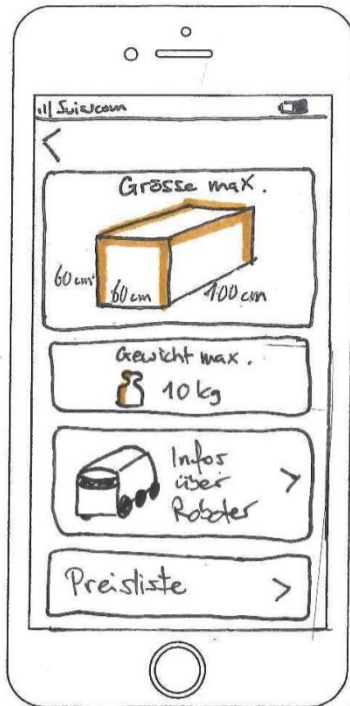 Swisscom
Grösse max.
60 cm
60 cm
100 cm
Gewicht max.
10 kg
Infos
über
Roboter
Preisliste